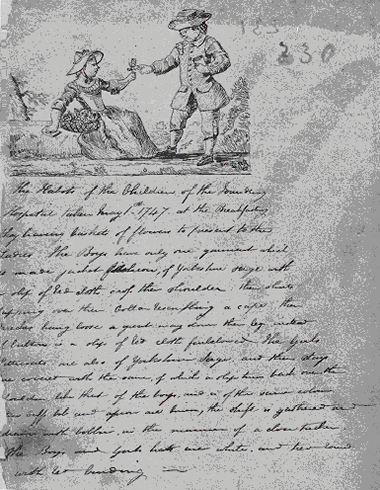 123
230
The Habits of the Children of the Founding
Hospital taken May 1st 1747. at the Breakfasting
they having Baskets of flowers to present to the
Ladies. The Boys have only one garment which
is made jacket fashion, of Yorkshire serge with
a slip of red cloth cross the shoulder: their shirts
lapping over their Collar resembling a cape: their
breeches being loose a great way down their leg, instead
Buttons is a slip of red cloth furbelowed. The Girls
Petticoats are also of Yorkshire Serge, and their stays
are covered with the same, of which a slip turns back over the
shoulder like that of the boys, and is of the same colour
buff bib and apron are linen, the shift is gathered and
drawn with bobbin, in the manner of a close tucker.
The Boys and Girls hats are white, and tied round
with red binding